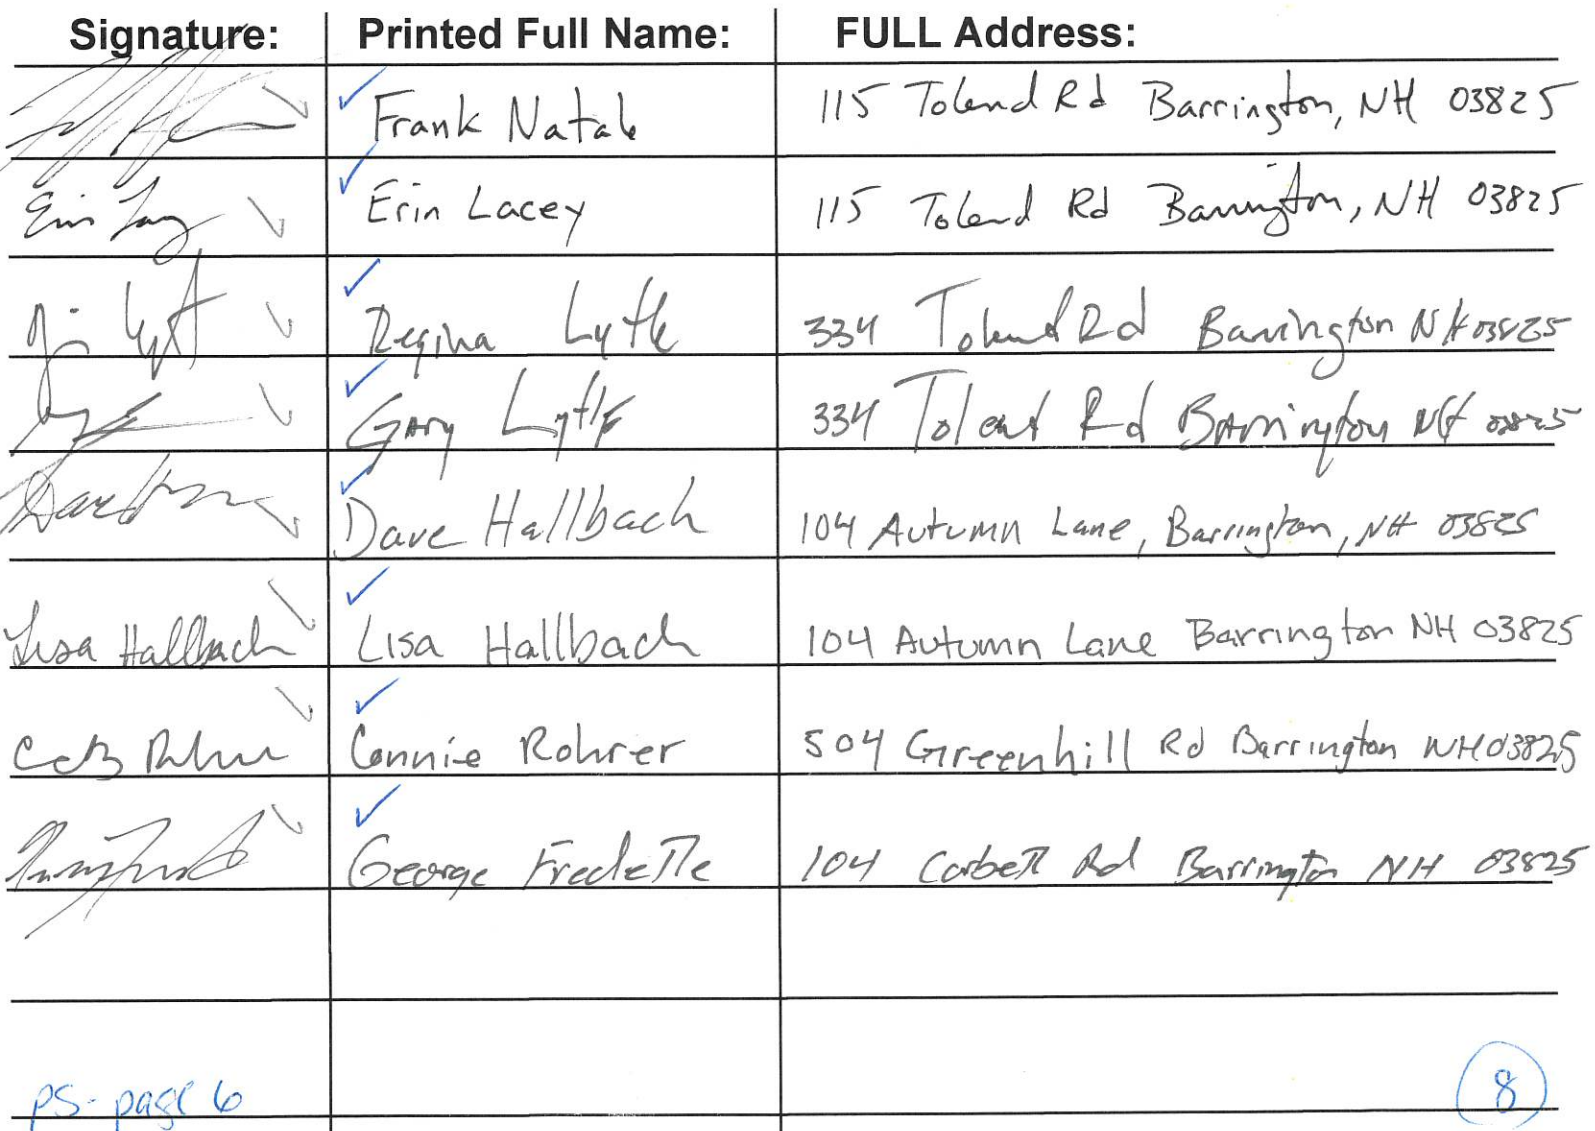 Signature: Printed Full Name: FULL Address:
Frank Natale 115 Tolend Rd Barrington, NH 03825
Erin Lacey Erin Lacey 115 Tolend Rd Barrington, NH 03825
Regina Lytle 334 Tolend Rd Barrington NH 03825
Gary Lytle 334 Tolend Rd Barrington NH 03825
Dave Hallbach 104 Autumn Lane, Barrington, NH 03825
Lisa Hallbach Lisa Hallbach 104 Autumn Lane Barrington NH 03825
Connie Rohrer 504 Greenhill Rd Barrington NH 03825
George Fredette 104 Corbett Rd Barrington NH 03825
PS- page 6 8